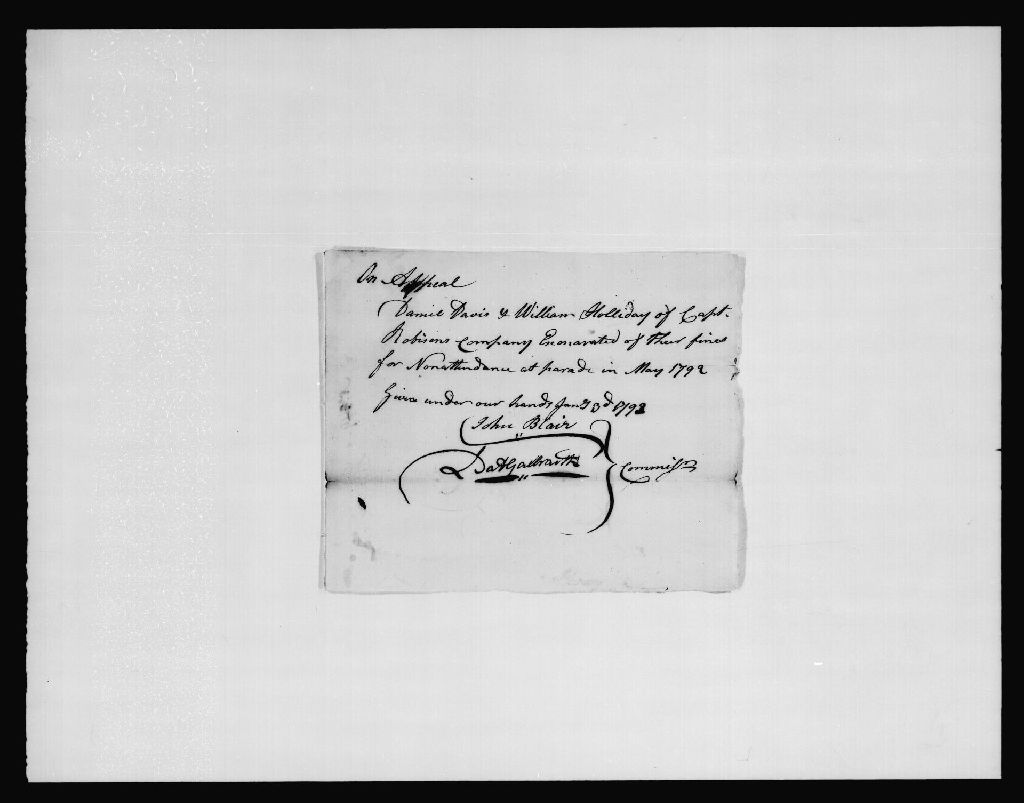 On Appeal
Daniel Davis & William Holliday of Capt.
Robisons Company Exonarated of their fines
for Nonattendance at parade in May 1792
Given under our hands Jany 3d 1793
John Blair
Galbraith
Commissrs